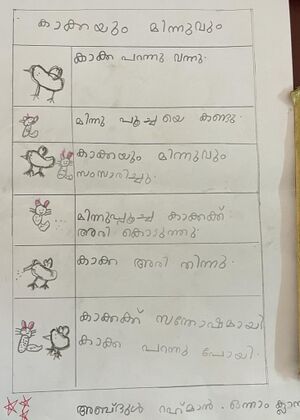 കാക്കയും മിന്നുവും
കാക്ക പറന്നു വന്നു.
മിന്നു പൂച്ച യെ കണ്ടു.
കാക്കയും മിന്നുവും
സംസാരിച്ചു.
മിന്നുപ്പൂച്ച കാക്കക്ക്
അരി കൊടുത്തു.
കാക്ക അരി തിന്നു.
കാക്കക്ക് സന്തോഷമായി
കാക്ക പറന്നു പോയി.
അബ്ദുൾ റഹ്മാൻ . ഒന്നാം